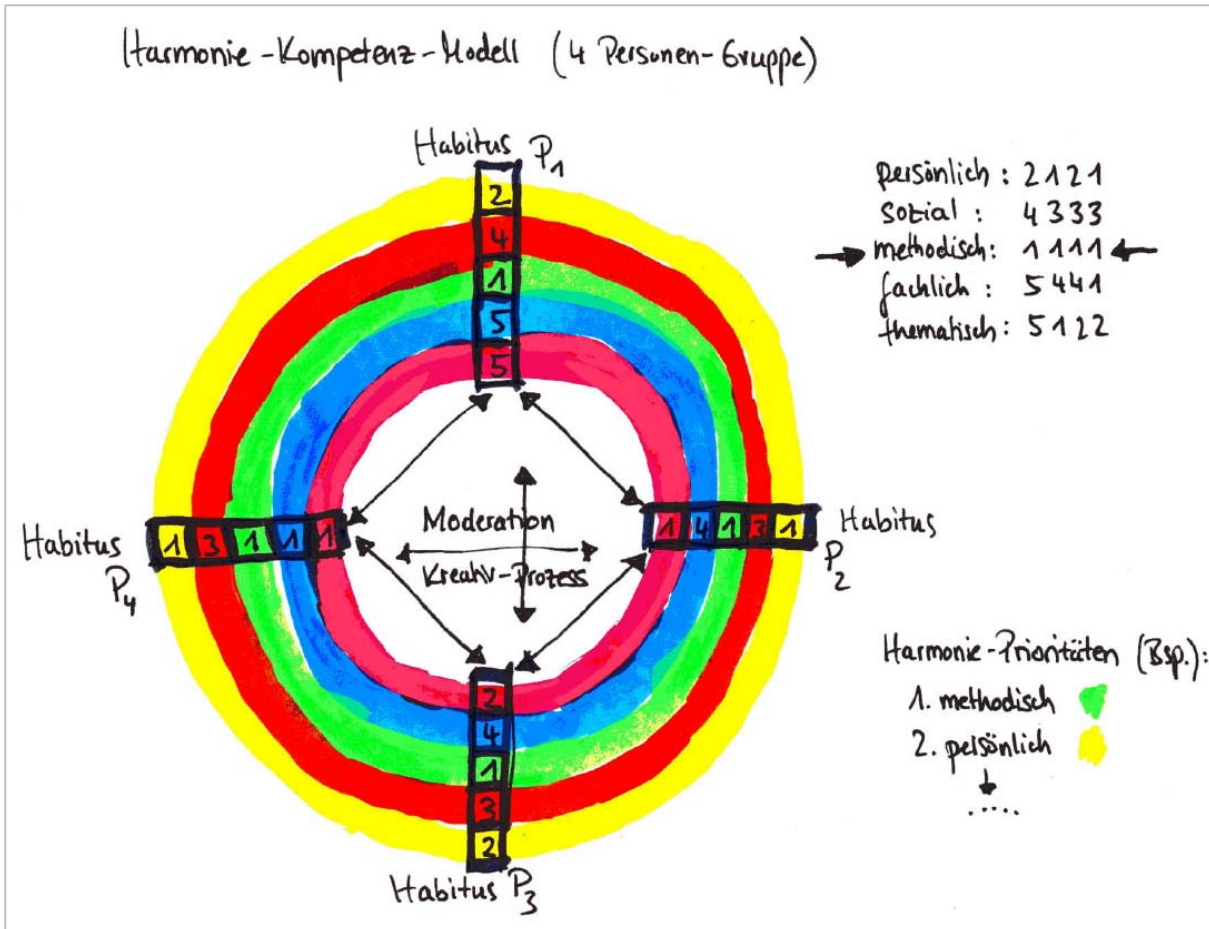 Harmonie-Kompetenz-Modell (4 Personen-Gruppe)
Habitus P1
2
4
1
5
5
persönlich: 2121
sozial: 4333
methodisch: 1111
fachlich: 5441
thematisch: 5122
Habitus P4
1 3 1 1 1
Moderation
Kreativ-Prozess
1 4 1 3 1
Habitus P2
2
4
1
3
2
Habitus P3
Harmonie-Prioritäten (Bsp.):
1. methodisch
2. persönlich
.....